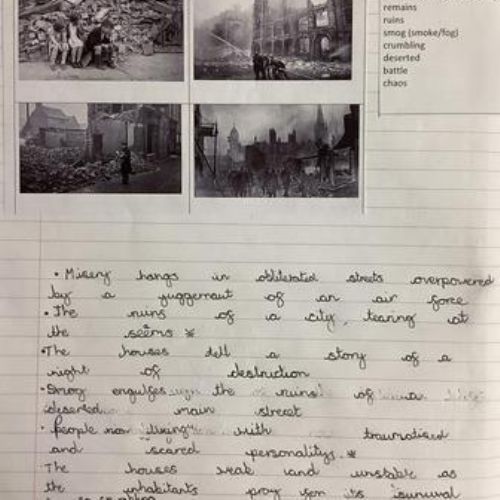 remains
ruins
smog (smoke/fog)
crumbling
deserted
battle
chaos
• Misery hangs in obliterated streets overpowered
by a juggernaut of an air force
• The ruins of a city, tearing at
the seems *
• The houses dell a story of a
night of destruction
• Smog engulfes the ruins of a
deserted main street
• people now living with traumatised
and scared personalitys. *
The houses weak and unstable as
the inhabitants pray for its survival